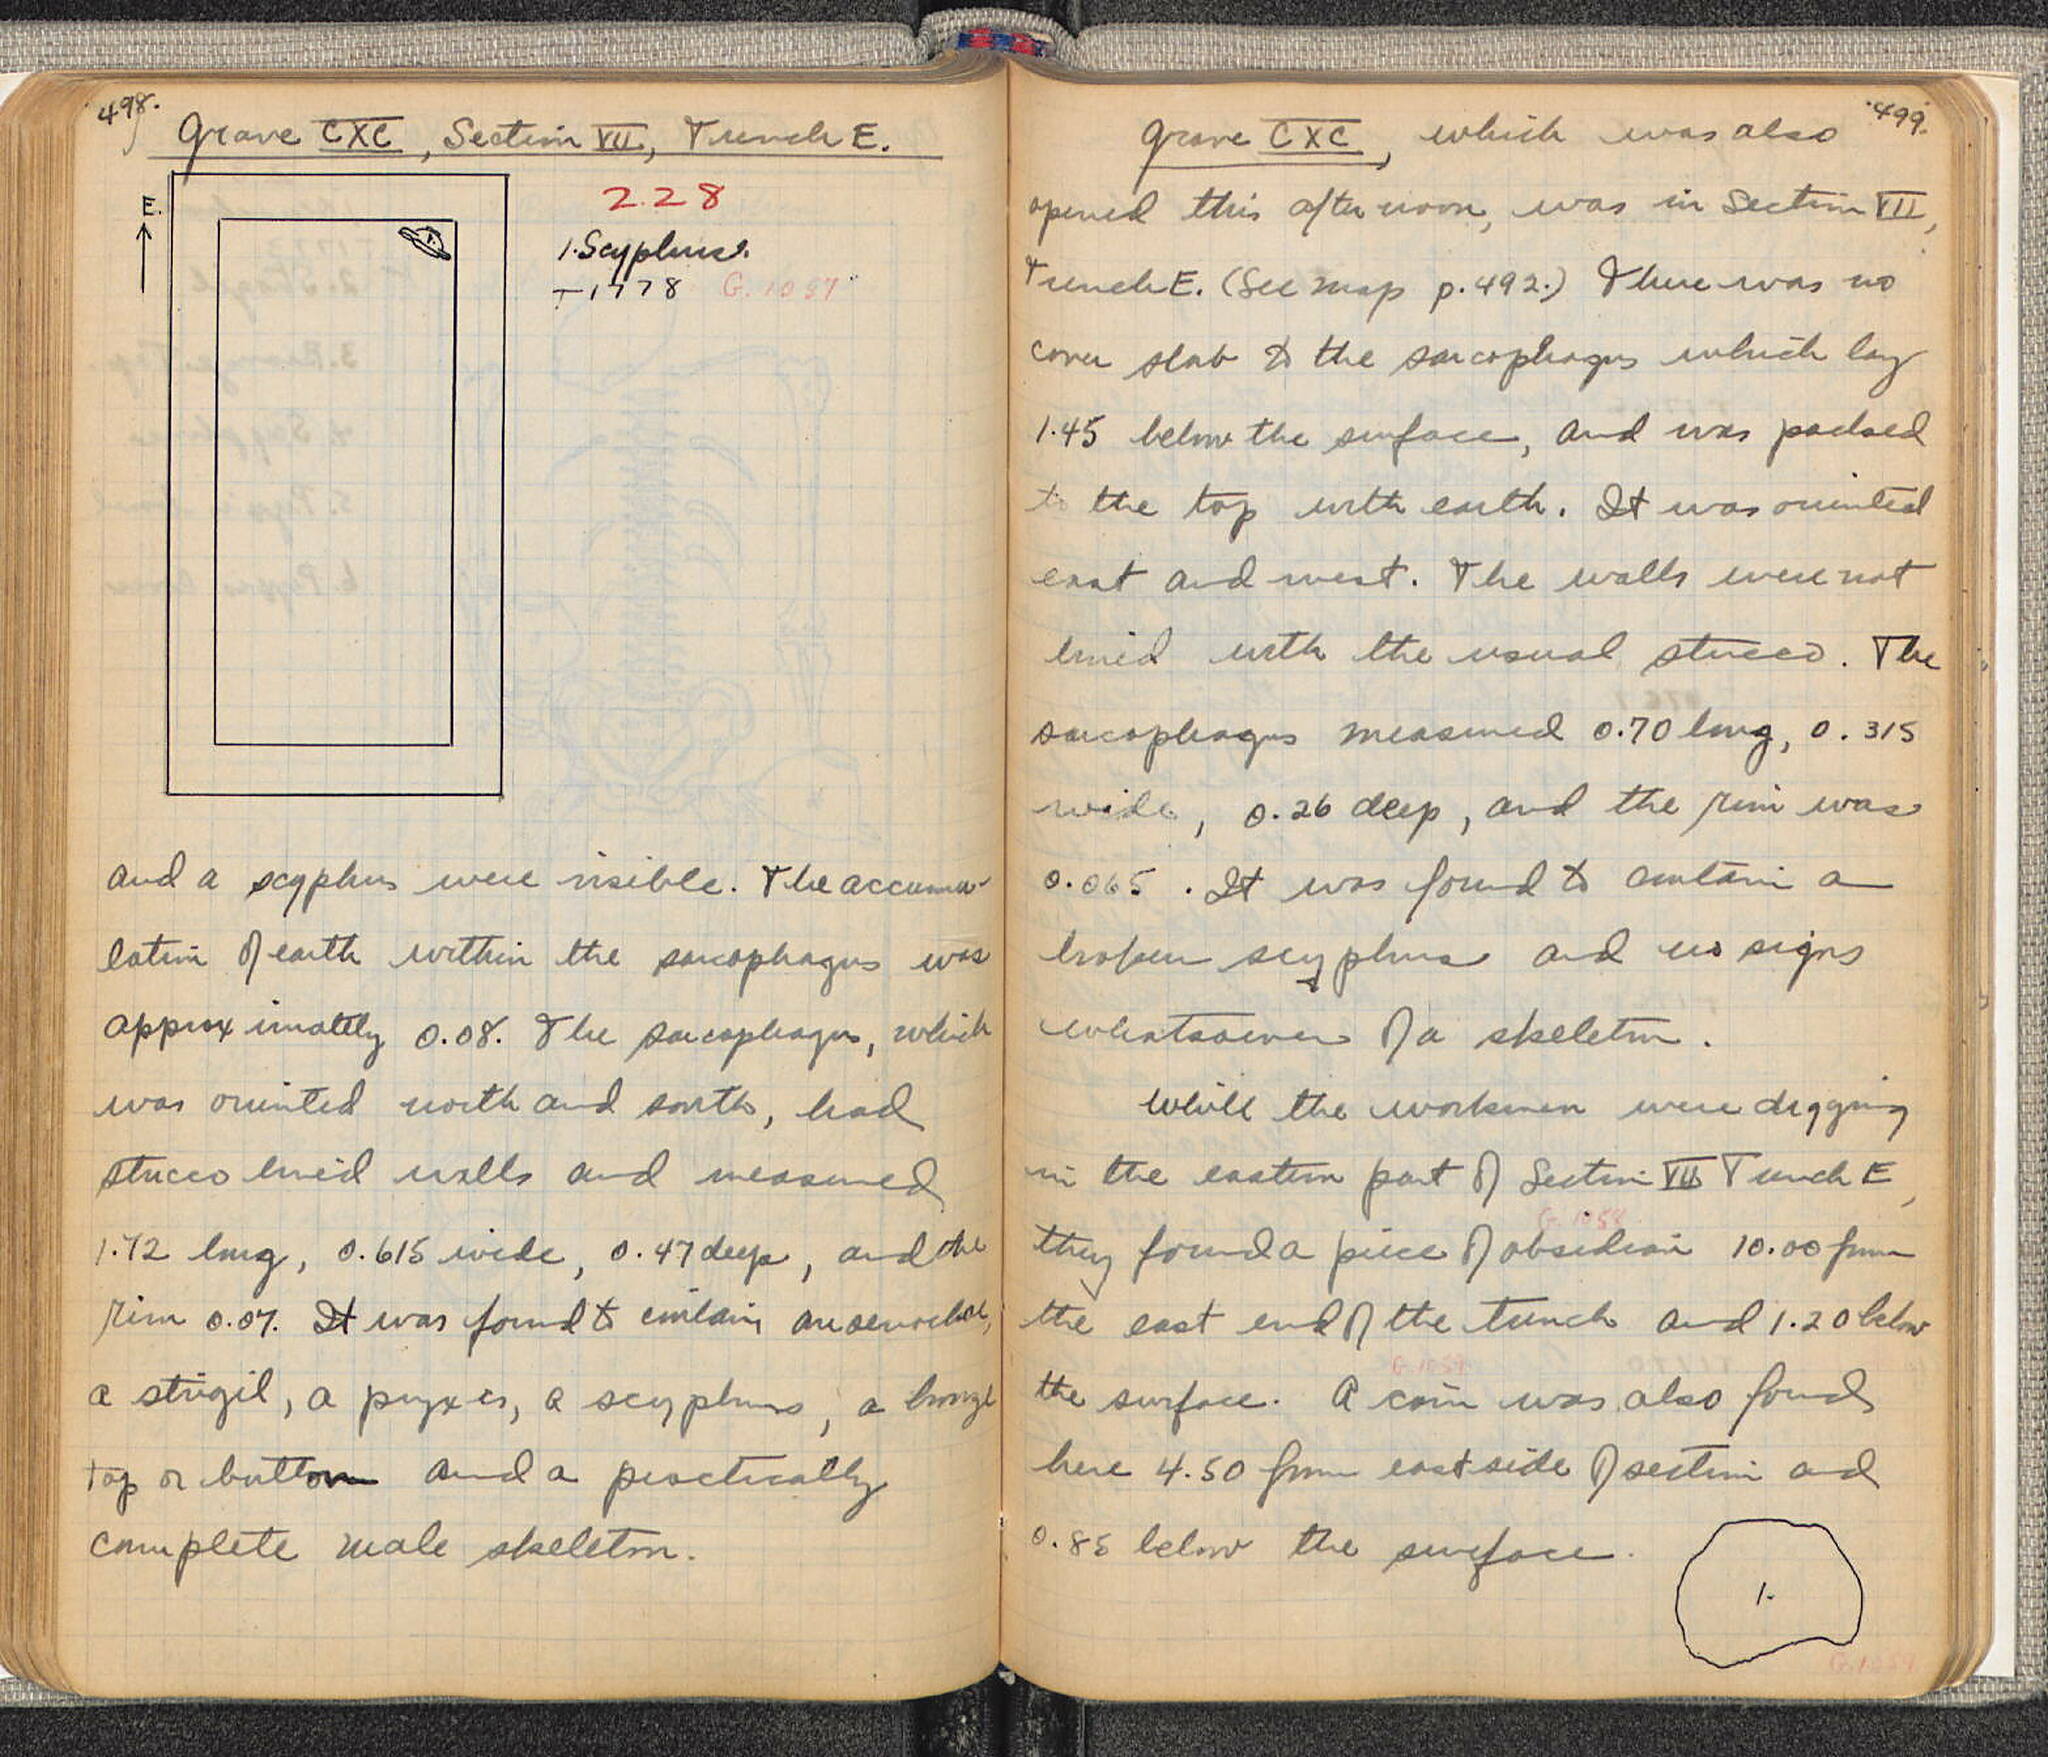 498.
Grave CXC, Section VII, Trench E.
E.
2.28
1. Scyphus.
T 1778 G. 1057
and a scyphus were visible. The accumu-
lation of earth within the sarcophagus was
approximately 0.08. The sarcophagus, which
was oriented north and south, had
stucco lined walls and measured
1.72 long, 0.615 wide, 0.47 deep, and the
rim 0.07. It was found to contain an oenochoe,
a strigil, a pyxis, a scyphus, a bronze
top or button and a practically
complete male skeleton.
499.
Grave CXC, which was also
opened this afternoon, was in Section VII,
Trench E. (See map p. 492.) There was no
cover slab to the sarcophagus which lay
1.45 below the surface, and was packed
to the top with earth. It was oriented
east and west. The walls were not
lined with the usual stucco. The
sarcophagus measured 0.70 long, 0.315
wide, 0.26 deep, and the rim was
0.065. It was found to contain a
broken scyphus and no signs
whatsoever of a skeleton.
While the workmen were digging
in the eastern part of Section VII Trench E,
G. 1058
they found a piece of obsidian 10.00 from
the east end of the trench and 1.20 below
G. 1059
the surface. A coin was also found
here 4.50 from east side of section and
0.85 below the surface.
1.
G. 1059